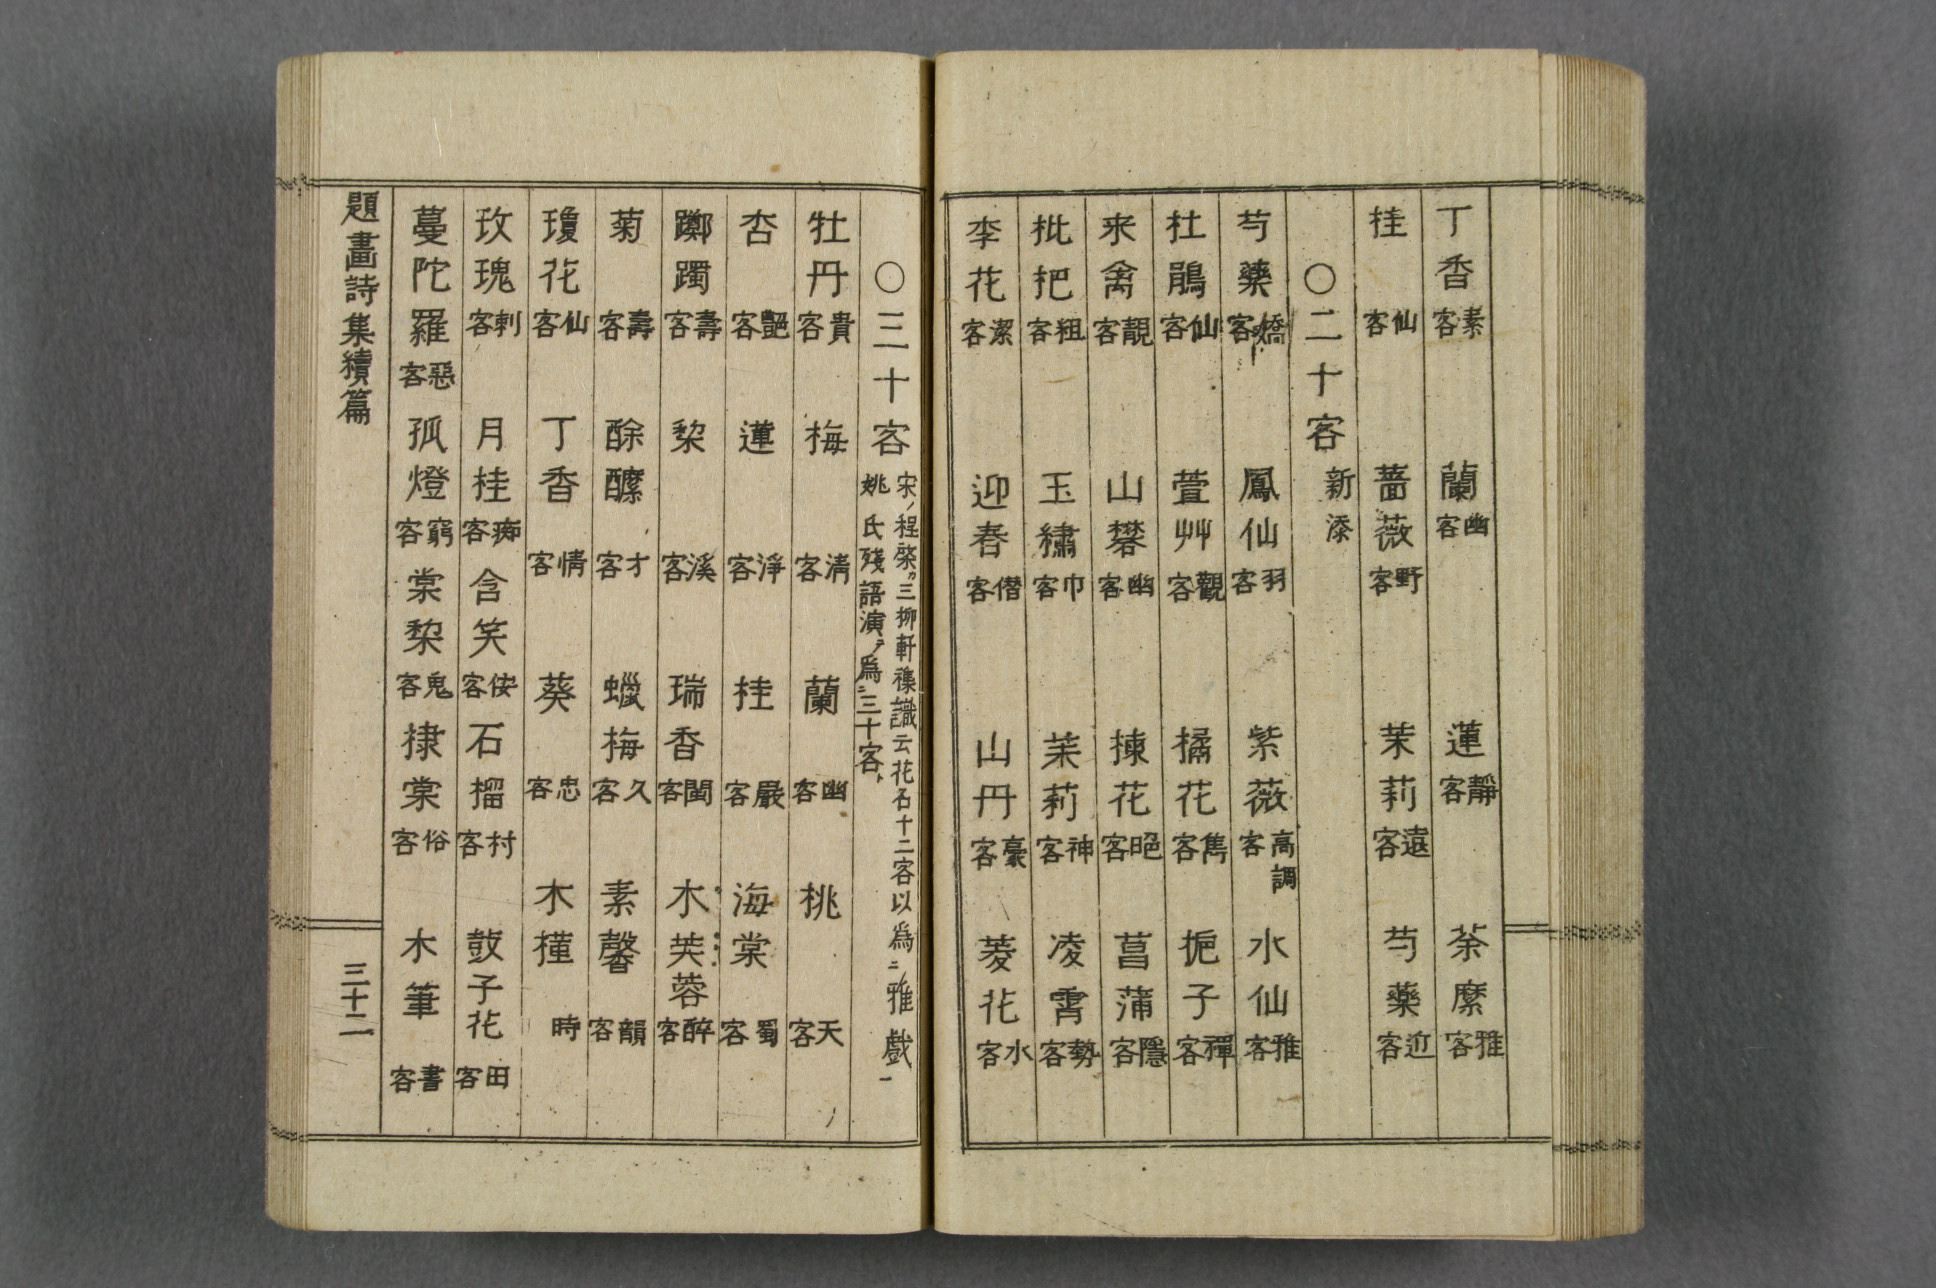 丁香素客 蘭幽客 蓮靜客 荼縻雅客
桂仙客 薔薇野客 茉莉遠客 芍藥近客
○二十客新添
芍藥嬌客 鳳仙羽客 紫薇高調客 水仙雅客
杜鵑仙客 萱艸觀客 橘花雋客 梔子禪客
来禽靚客 山礬幽客 楝花晚客 菖蒲隱客
枇把粗客 玉繡巾客 茉莉神客 凌霄勢客
李花潔客 迎春僭客 山丹豪客 菱花水客
○三十客
宋ノ程棨ガ三柳軒襍識云花名十二客以爲ニ雅戲一
姚氏殘語演ヲ爲ニ三十客
牡丹貴客 梅清客 蘭幽客 桃天客
杏艶客 蓮淨客 桂嚴客 海棠蜀客
躑躅壽客 梨溪客 瑞香閨客 木芙蓉醉客
菊壽客 酴醾才客 蠟梅久客 素馨韻客
瓊花仙客 丁香情客 葵忠客 木槿時
玫瑰刺客 月桂痴客 含笑佞客 石榴村客 鼓子花田客
蔓陀羅惡客 孤燈窮客 棠梨鬼客 棣棠俗客 木筆書客
題畫詩集續篇
三十二